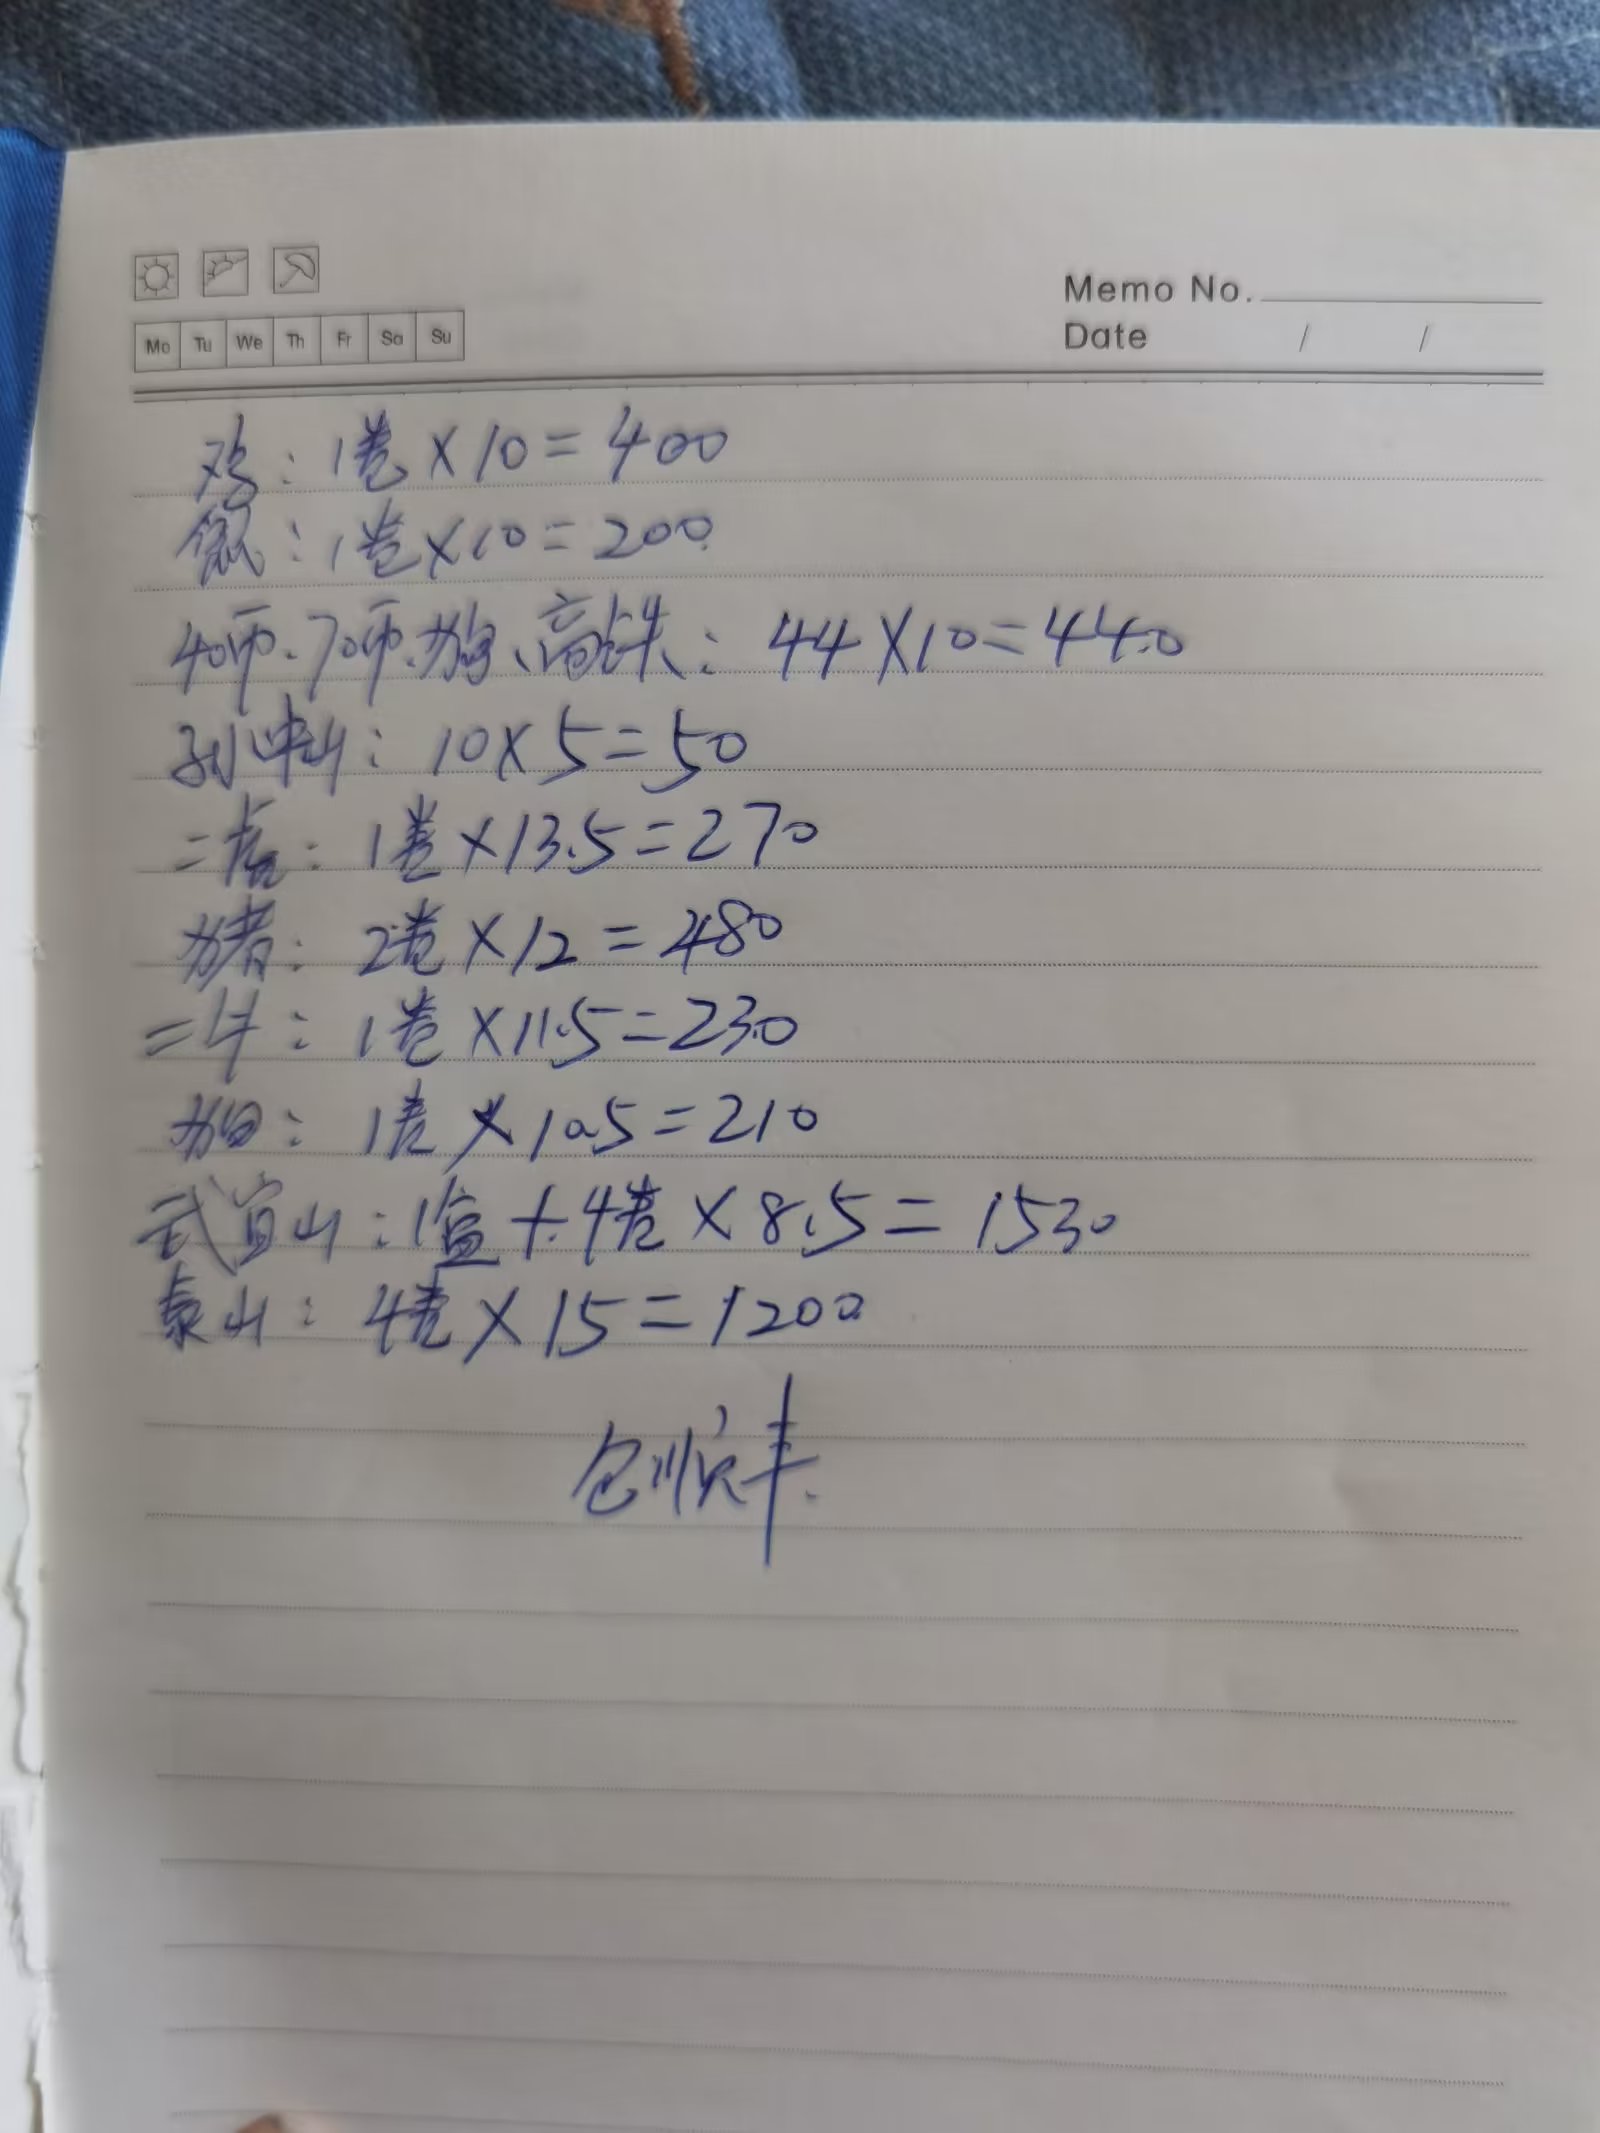 Memo No.
Mo Tu We Th Fr Sa Su
Date / /
鸡：1卷×10=400
鼠：1卷×10=200
40币、70币、狗、高铁：44×10=440
孙中山：10×5=50
二虎：1卷×13.5=270
猪：2卷×12=480
二牛：1卷×11.5=230
狗：1卷×10.5=210
武宜山：1盒+4卷×8.5=1530
泰山：4卷×15=1200
包顺丰.